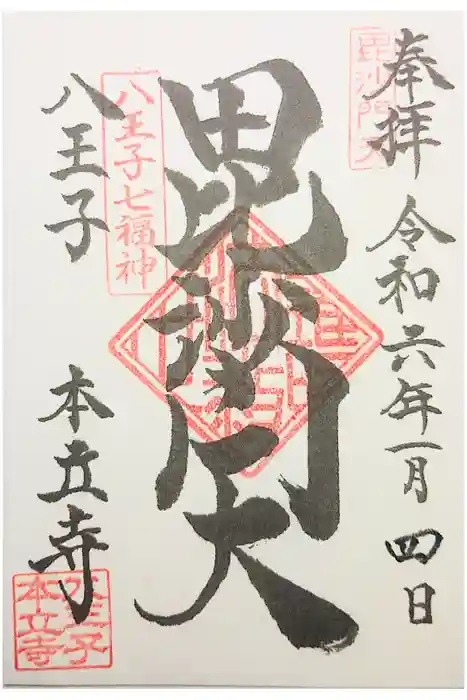 奉拝
令和六年一月四日
毘沙門天
毘沙門天
八王子七福神
八王子
本立寺
八王子
本立寺